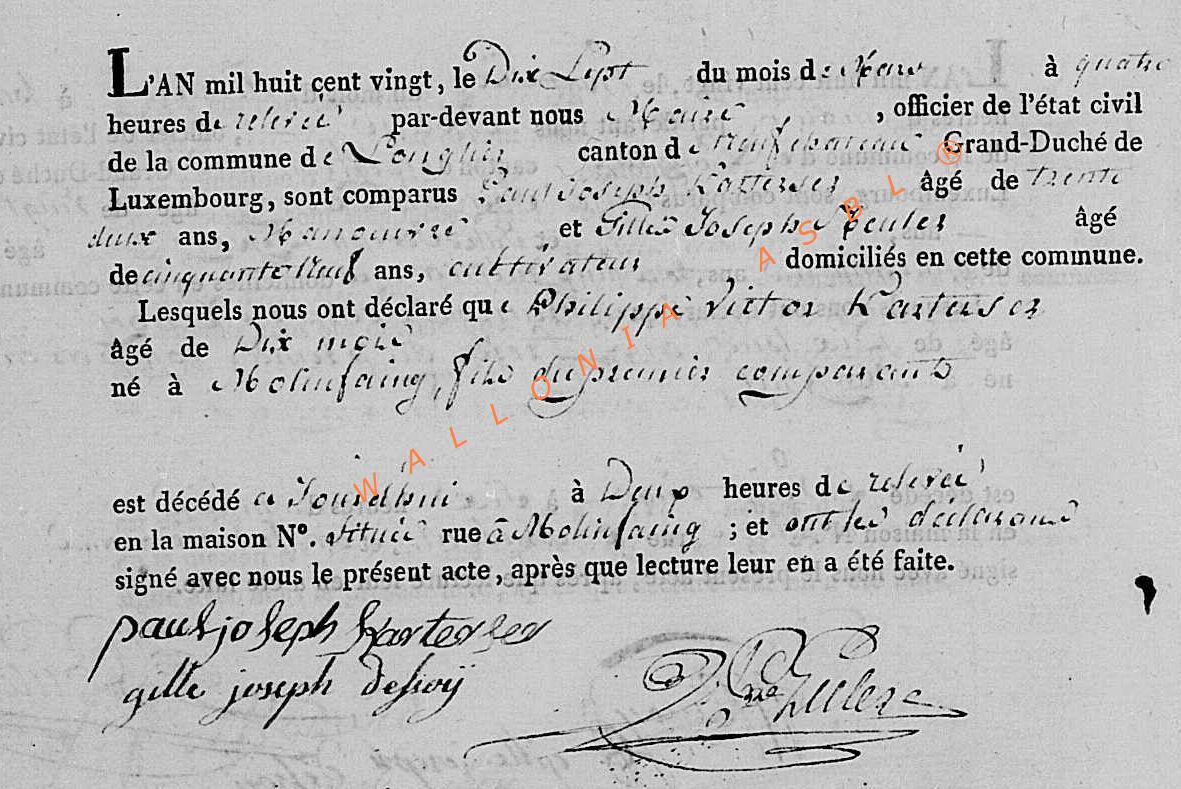 L'AN mil huit cent vingt, le Dix Sept du mois de Mars à quatre
heures de relevée par-devant nous Maire, officier de l'état civil
de la commune de Longlier canton de Neufchateau Grand-Duché de
Luxembourg, sont comparus Paul Joseph Karterser âgé de trente
deux ans, Manouvrié et Gille Joseph âgé
de cinquante Neuf ans, cultivateur domiciliés en cette commune.
Lesquels nous ont déclaré que Philippe Victor Karterser
âgé de Dix mois
né à Molinfaing, fils du premier comparants
est décédé à Deux heures de relevée
en la maison N°. située rue à Molinfaing ; et ont les déclarants
signé avec nous le présent acte, après que lecture leur en a été faite.
paul joseph Karterser
gille joseph
WALLONIA ASBL ®